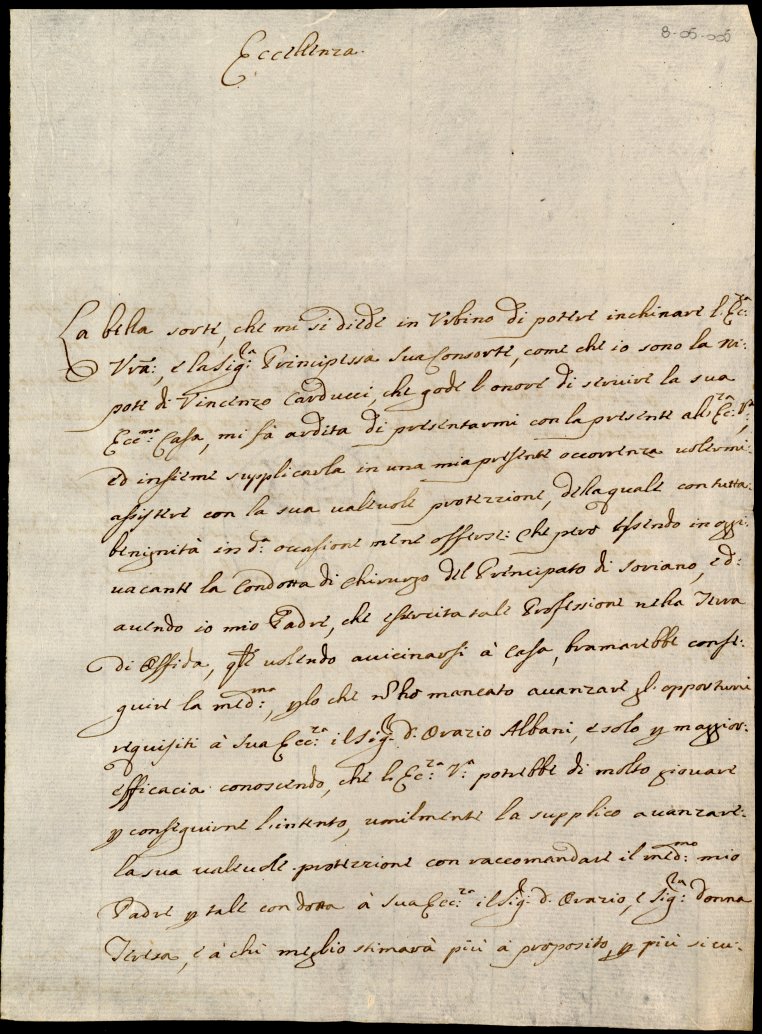 8-05-005
Eccellenza
La bella sorte, che mi si diede in Vrbino di potere inchinare l'Ecc.za
Vrã:, e la Sig.ra Principessa Sua Consorte, come che io sono la ni-
pote di Vincenzo Carducci, che gode l'onore di servire la sua
Ecc.ma Casa, mi fà ardita di presentarmi con la presente all'Ecc.za V.a,
ed insieme supplicarla in una mia presente occorrenza volermi
assistere con la sua valevole protezzione, della quale con tutta
benignità in d.a occasione mene offerse: che però essendo in oggi
vacante la Condotta di Chirurgo del Principato di Soriano, ed
avendo io mio Padre, che esercita tale Professione nella Terra
di Offida, qle volendo avvicinarsi à Casa, bramarebbe conse-
guire la med.ma, p lo che nõ hò mancato avanzare gl'opportuni
requisiti à Sua Ecc.za il Sig.r d. Orazio Albani, e solo p maggior
efficacia conoscendo, che l'Ecc.za V.a potrebbe di molto giovare
p conseguirne l'intento, umilmente la supplico avanzare
la sua valevole protezzione con raccomandare il med.mo mio
Padre p tale condotta à Sua Ecc.za il Sig.r d. Orazio, e Sig.ra donna
Teresa, e à chi meglio stimarà più à proposito, p più sicu-